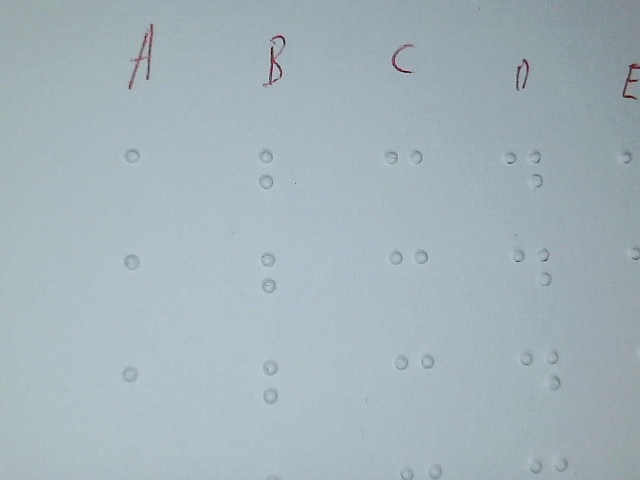 A B C D E
⠁ ⠃ ⠉ ⠙
⠁ ⠃ ⠉ ⠙
⠁ ⠃ ⠉ ⠙